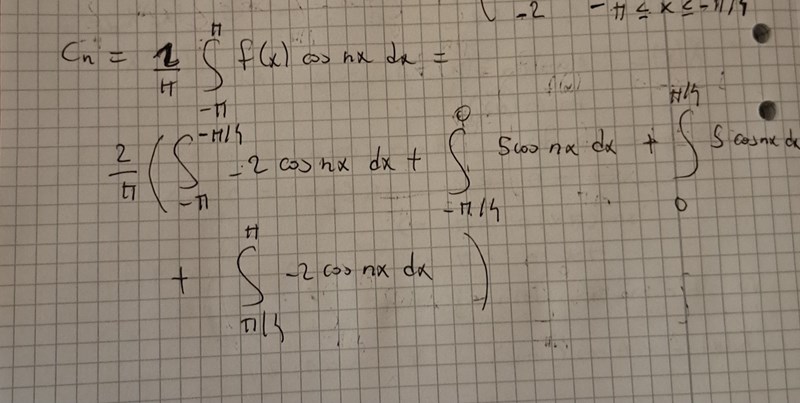 -2 -π ≤ x ≤ -π/4
Cn = 1/π ∫_{-π}^{π} f(x) cos nx dx =
2/π ( ∫_{-π}^{-π/4} -2 cos nx dx + ∫_{-π/4}^{0} 5 cos nx dx + ∫_{0}^{π/4} 5 cos nx dx
+ ∫_{π/4}^{π} -2 cos nx dx )